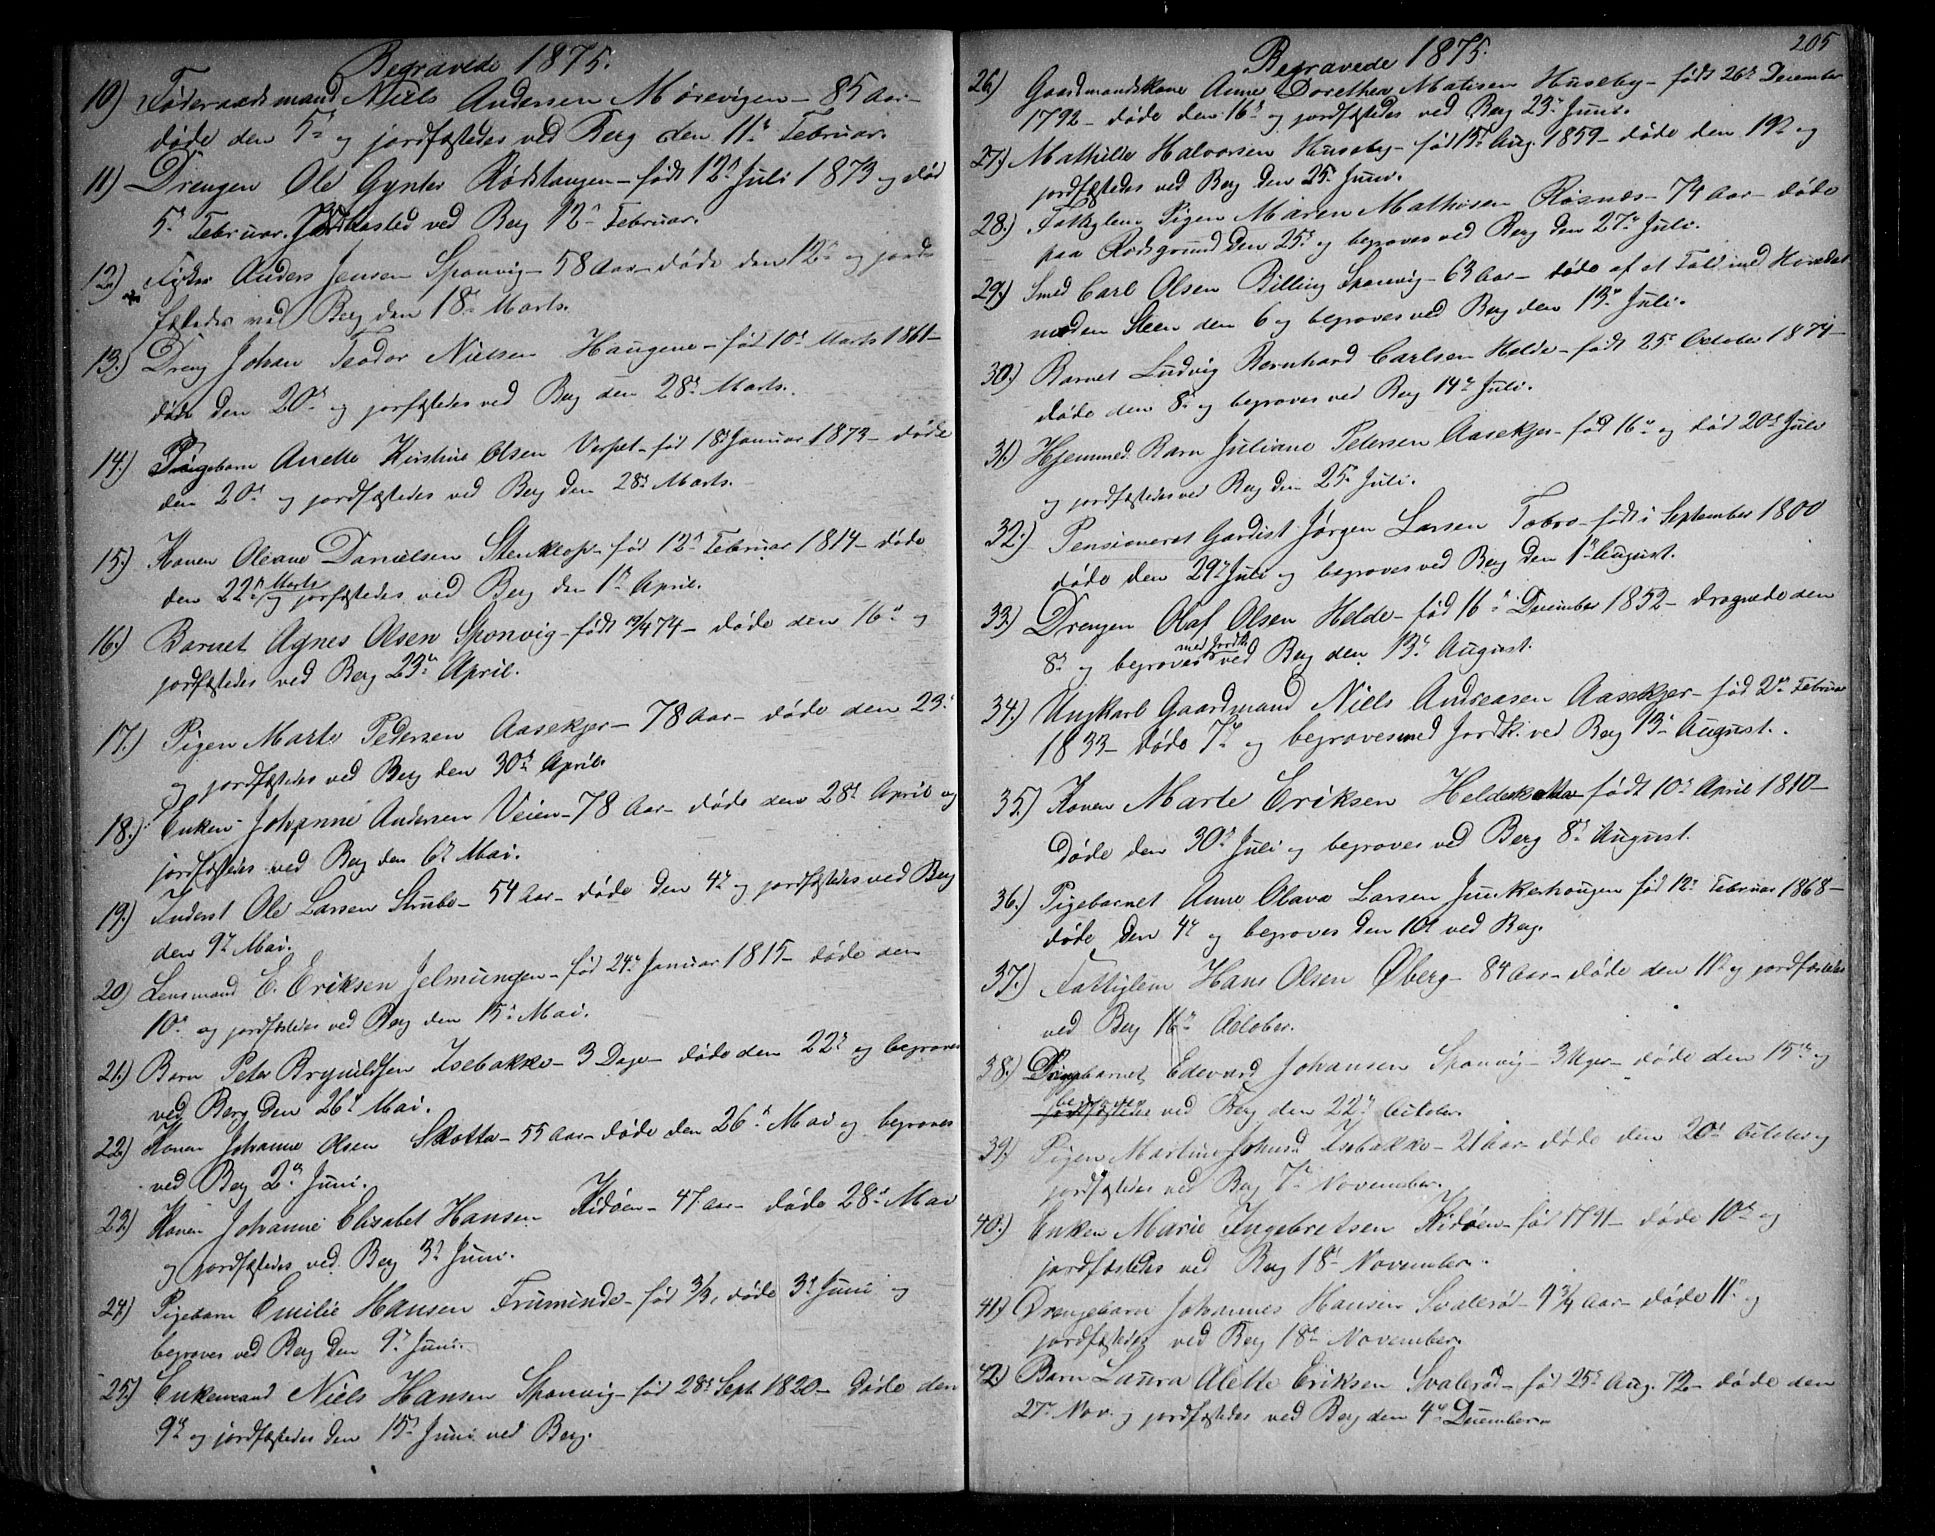 Begravede 1875.
10) Føderaadsmand Niels Andersen Mørevigen - 85 Aar -
døde den 5te og jordfæstedes ved Berg den 11te Februar.
11) Drengen Ole Gynter Rødstangen - født 12te Juli 1873 og død
5te Februar. Jordfæsted ved Berg 12te Februar.
12) Anders Jensen Sponvig - 58 Aar - døde den 12te og jord-
fæstedes ved Berg den 18te Marts.
13.) Dreng Johan Teodor Nielsen Haugene - fød 10de Marts 1861 -
døde den 20de og jorfæstedes ved Berg den 28de Marts.
14.) Pigebarn Anette Kirstine Olsen - fød 18de Januar 1873 - døde
den 20de og jordfæstedes ved Berg den 28de Marts.
15.) Konen Oleane Danielsen Stenklop - fød 12te Februar 1814 - døde
den 22de Marts og jorfæstedes ved Berg den 1te April.
16.) Barnet Agnes Olsen Sponvig - født 74 - døde den 16de og
jordfæstedes ved Berg 23de April.
17.) Pigen Marte Pedersen Aasekjer - 78 Aar - døde den 23de
og jordfæstedes ved Berg den 30de April.
18.) Enken Johanne Andersen Veien - 78 Aar - døde den 28de April og
jordfæstedes ved Berg den 6te Mai.
19.) Inderst Ole Larsen Strubo - 54 Aar - døde den 4de og jordfæstedes ved Berg
den 9de Mai.
20) Lensmand E. Eriksen Jelmungen - fød 24de Januar 1815 - døde den
10de og jordfæstedes ved Berg den 15de Mai.
21.) Barn Peter Bryníldsen Isebakke - 3 Dage - døde den 22de og begroves
ved Berg den 26de Mai.
22.) Konen Johanne Olsen Skotta - 55 Aar - døde den 26de Mai og begroves
ved Berg 2den Juni.
23.) Konen Johanne Elisabet Hansen Kidøen - 47 Aar - døde 28de Mai
og jordfæstedes ved Berg 3de Juni.
24.) Pigebarn Emilie Hansen - fød 3/3, døde 3de Juni og
begroves ved Berg den 9de Juni.
25.) Enkemand Niels Hansen Sponvig - fød 28de Sept. 1820 - døde den
9de og jordfæstedes den 15de Juni ved Berg.
205
Begravede 1875.
26.) Gaardmandskone Anne Dorethea Matisen Huseby - født 26de December
1792 - døde den 16de og jordfæstedes ved Berg 23de Juni.
27.) Mathilde Halvorsen Huseby - fød 15de Aug. 1859 - døde den 19de og
jordfæstedes ved Berg den 25de Juni.
28.) Fattiglem Pigen Maren Mathisen Røsnes - 74 Aar - døde
paa Rødsgrund den 25de og begroves ved Berg den 27de Juli.
29.) Smed Carl Olsen Billing Sponvig - 63 Aar - døde af et Fald med Hovedet
mod en Steen den 6 og begroves ved Berg den 13de Juli.
30.) Barnet Ludvig Bernhard Carlsen Helde - født 25de October 1874 -
døde den 8de og begroves ved Berg 14de Juli.
31.) Hjemmed. Barn Juliane Petersen Aasekjer - fød 16de og død 20de Juli
og jordfæstedes ved Berg den 25de Juli.
32.) Pensioneret Gardist Jørgen Larsen Tobro - født i September 1800
døde den 29de Juli og begroves ved Berg den 1te August.
33.) Drengen Olaf Olsen Helde - fød 16de December 1852 - drognede den
8de og begroves med Jordk. ved Berg den 13de August.
34.) Ungkarl Gaardmand Niels Andreasen Aasekjer - fød 2den Februar
1833 - døde 7de og begroves med Jordk. ved Berg 13de August.
35.) Konen Marte Eriksen - født 10de April 1810 -
døde den 30de Juli og begroves ved Berg 8de August.
36.) Pigebarnet Anne Olava Larsen Junkerhougen fød 12te Februar 1868 -
døde den 4de og begroves den 10de ved Berg.
37.) Fattiglem Hans Olsen Øberg - 84 Aar - døde den 11te og jordfæstedes
ved Berg 16de October.
38.) Edevard Johansen Sponvig - 3 Uger - døde den 15de og
begroves ved Berg den 22de October.
39.) Pigen Martine Johnsd. Isebakke - 21 Aar - døde den 20de October og
jordfæstedes ved Berg 7de November.
40.) Enken Marie Ingebretsen Kidøen - fød 1791 - døde 10de og
jordfæstedes ved Berg 18de November.
41.) Drengebarn Johannes Hansen Svalerød - 9 3/4 Aar - døde 11te og
jordfæstedes ved Berg 18de November.
42.) Barn Laura Alette Eriksen Svalerød - fød 25de Aug. 72 - døde den
27de Nov. og jordfæstedes ved Berg den 4de December.